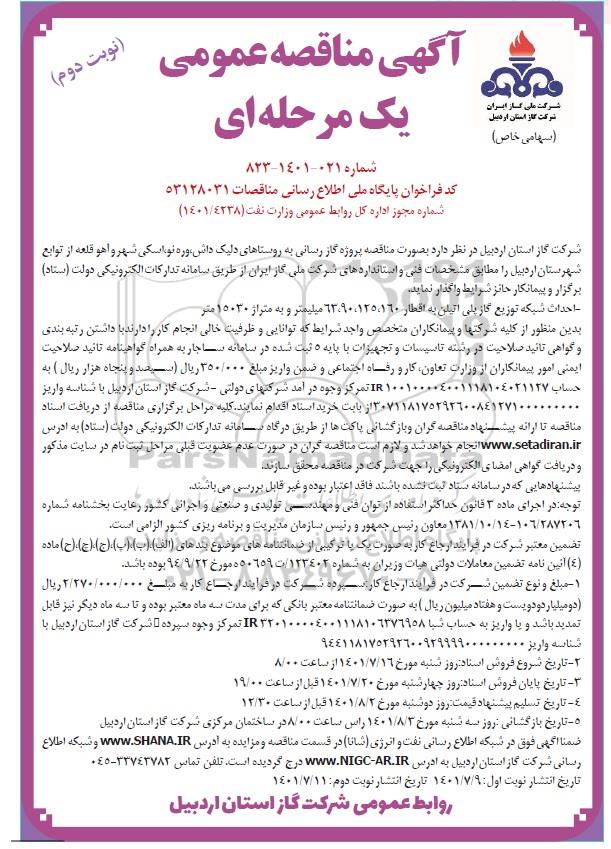 آگهی مناقصه عمومی
یک مرحله‌ای
(نوبت دوم)
شرکت ملی گاز ایران
شرکت گاز استان اردبیل
(سهامی خاص)
شماره ۰۲۱-۱۴۰۱-۸۲۳
کد فراخوان پایگاه ملی اطلاع رسانی مناقصات ۵۳۱۲۸۰۳۱
شماره مجوز اداره کل روابط عمومی وزارت نفت (۱۴۰۱/۴۲۳۸)
شرکت گاز استان اردبیل در نظر دارد بصورت مناقصه پروژه گاز رسانی به روستاهای دلیک داش،وره نو،اسکی شهر و آهو قلعه از توابع
شهرستان اردبیل را مطابق مشخصات فنی و استانداردهای شرکت ملی گاز ایران از طریق سامانه تدارکات الکترونیکی دولت (ستاد)
برگزار و پیمانکار حائز شرایط واگذار نماید.
-احداث شبکه توزیع گاز پلی اتیلن به اقطار ۶۳،۹۰،۱۲۵،۱۶۰ میلیمتر و به متراژ ۱۵۰۳۰ متر
بدین منظور از کلیه شرکتها و پیمانکاران متخصص واجد شرایط که توانایی و ظرفیت خالی انجام کار را دارند با داشتن رتبه بندی
و گواهی تائید صلاحیت در رشته تاسیسات و تجهیزات با پایه ۵ ثبت شده در سامانه ساجار به همراه گواهینامه تائید صلاحیت
ایمنی امور پیمانکاران از وزارت تعاون، کار و رفاه اجتماعی و ضمن واریز مبلغ ۳۵۰/۰۰۰ ریال (سیصد و پنجاه هزار ریال) به
حساب IR ۱۰۰۱۰۰۰۰۴۰۰۱۱۱۸۱۰۴۰۲۱۱۲۷ تمرکز وجوه در آمد شرکتهای دولتی -شرکت گاز استان اردبیل با شناسه واریز
۳۰۷۱۱۸۱۷۵۲۹۲۶۰۰۸۴۱۲۷۱۰۰۰۰۰۰۰۰۰ از بابت خرید اسناد اقدام نمایند.کلیه مراحل برگزاری مناقصه از دریافت اسناد
مناقصه تا ارائه پیشنهاد مناقصه گران و بازگشائی پاکت ها از طریق درگاه سامانه تدارکات الکترونیکی دولت (ستاد) به آدرس
www.setadiran.ir انجام خواهد شد و لازم است مناقصه گران در صورت عدم عضویت قبلی مراحل ثبت نام در سایت مذکور
و دریافت گواهی امضای الکترونیکی را جهت شرکت در مناقصه محقق سازند.
پیشنهادهایی که در سامانه ستاد ثبت نشده باشند فاقد اعتبار بوده و غیر قابل بررسی می باشند.
توجه:در اجرای ماده ۳ قانون حداکثر استفاده از توان فنی و مهندسی تولیدی و صنعتی و اجرائی کشور رعایت بخشنامه شماره
۱۰۶/۲۸۷۲۰۶-۱۳۸۱/۱۰/۱۴ معاون رئیس جمهور و رئیس سازمان مدیریت و برنامه ریزی کشور الزامی است.
تضمین معتبر شرکت در فرآیند ارجاع کار به صورت یک یا ترکیبی از ضمانتنامه های موضوع بندهای (الف)،(ب)،(پ)،(ج)،(چ)،(ح) ماده
(۴) آئین نامه تضمین معاملات دولتی هیات وزیران به شماره ۱۲۳۴۰۲/ت ۵۰۶۵۹ ه مورخ ۹۴/۹/۲۲ بوده باشد.
۱-مبلغ و نوع تضمین شرکت در فرآیند ارجاع کار:سپرده شرکت در فرآیند ارجاع کار به مبلغ ۲/۲۷۰/۰۰۰/۰۰۰ ریال
(دو میلیارد و دویست و هفتاد میلیون ریال) به صورت ضمانتنامه معتبر بانکی که برای مدت سه ماه معتبر بوده و تا سه ماه دیگر نیز قابل
تمدید باشد و یا واریز به حساب شبا IR ۳۲۰۱۰۰۰۰۴۰۰۱۱۱۸۱۰۶۳۷۶۹۵۸ تمرکز وجوه سپرده شرکت گاز استان اردبیل با
شناسه واریز ۹۴۴۱۱۸۱۷۵۲۹۲۶۰۰۹۲۹۹۹۹۰۰۰۰۰۰۰۰۰
۲-تاریخ شروع فروش اسناد:روز شنبه مورخ ۱۴۰۱/۷/۱۶ از ساعت ۸/۰۰
۳-تاریخ پایان فروش اسناد:روز چهارشنبه مورخ ۱۴۰۱/۷/۲۰ قبل از ساعت ۱۹/۰۰
۴-تاریخ تسلیم پیشنهاد قیمت:روز دوشنبه مورخ ۱۴۰۱/۸/۲ قبل از ساعت ۱۲/۳۰
۵-تاریخ بازگشائی :روز سه شنبه مورخ ۱۴۰۱/۸/۳ راس ساعت ۸/۰۰ در ساختمان مرکزی شرکت گاز استان اردبیل
ضمنا آگهی فوق در شبکه اطلاع رسانی نفت و انرژی (شانا) در قسمت مناقصه و مزایده به آدرس WWW.SHANA.IR و شبکه اطلاع
رسانی شرکت گاز استان اردبیل به آدرس WWW.NIGC-AR.IR درج گردیده است. تلفن تماس ۳۳۷۴۳۷۸۲-۰۴۵
تاریخ انتشار نوبت اول: ۱۴۰۱/۷/۹ تاریخ انتشار نوبت دوم: ۱۴۰۱/۷/۱۱
روابط عمومی شرکت گاز استان اردبیل
ParsNamadData